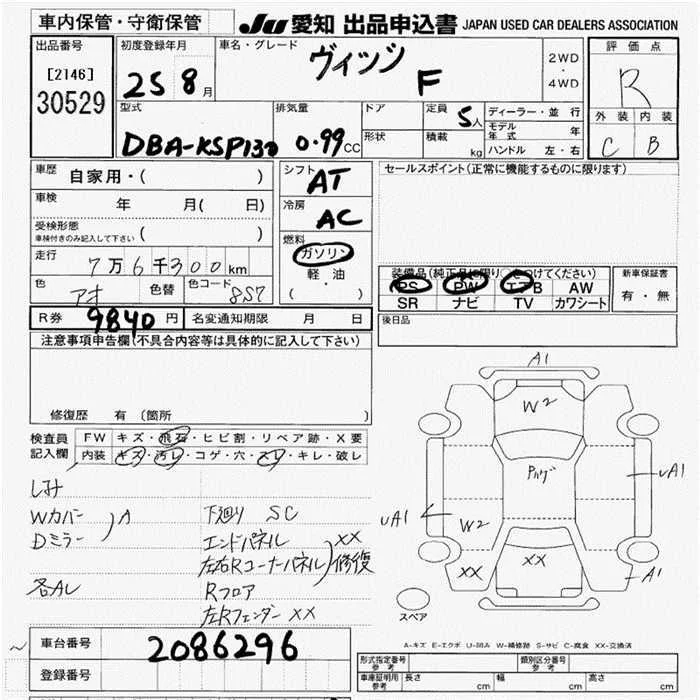 車内保管・守衛保管
JU 愛知 出品申込書 JAPAN USED CAR DEALERS ASSOCIATION
出品番号
[2146]
30529
初度登録年月
25 8月
車名・グレード
ヴィッツ
F
2WD
・
4WD
評価点
R
外装 内装
C B
型式
DBA-KSP130
排気量
0.99 CC
ドア
形状
定員 5人
積載 kg
ディーラー・並行
モデル年式 年
ハンドル 左・右
車歴
自家用・( )
車検 年 月( 日)
受検形態
車検付きのみ記入して下さい ( )
走行
7万6千300km
色 アオ
色替
色コード 8S7
シフト AT
冷房 AC
燃料
ガソリン
軽・油
( ・ )
セールスポイント(正常に機能するものに限ります)
装備品(純正品に限り○をつけてください)
PS PW エアB AW
SR ナビ TV カワシート
新車保証書
有・無
R券 9840円 名変通知期限 月 日
後日品
注意事項申告欄(不具合内容等は具体的に記入して下さい)
修復歴 有(箇所 )
検査員
記入欄
FW キズ・飛石・ヒビ割・リペア跡・X要
内装 キズ・汚レ・コゲ・穴・スレ・キレ・破レ
シミ
Wカバー
Dミラー
)A
各AL
下廻り SC
エンドパネル XX
左右Rコーナーパネル 修復
Rフロア
左Rフェンダー XX
A1
W2
Pﾊﾝｹﾞ
UA1
UA1
W2
XX
XX
A1
スペア
車台番号
2086296
登録番号
A-キズ E-エクボ U-凹み W-補修跡 S-サビ C-腐食 XX-交換済
形式指定番号
参考
類別区分番号
参考
車庫証明用
参考
長さ cm
幅 cm
高さ cm